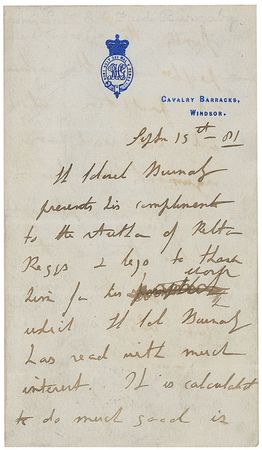 CAVALRY BARRACKS,
WINDSOR.
Septr 15th 81
Lt Colonel Burnaby
presents his compliments
to the Author of
& begs to thank
him for his work
which Lt Col Burnaby
has read with much
interest. It is calculated
to do much good is